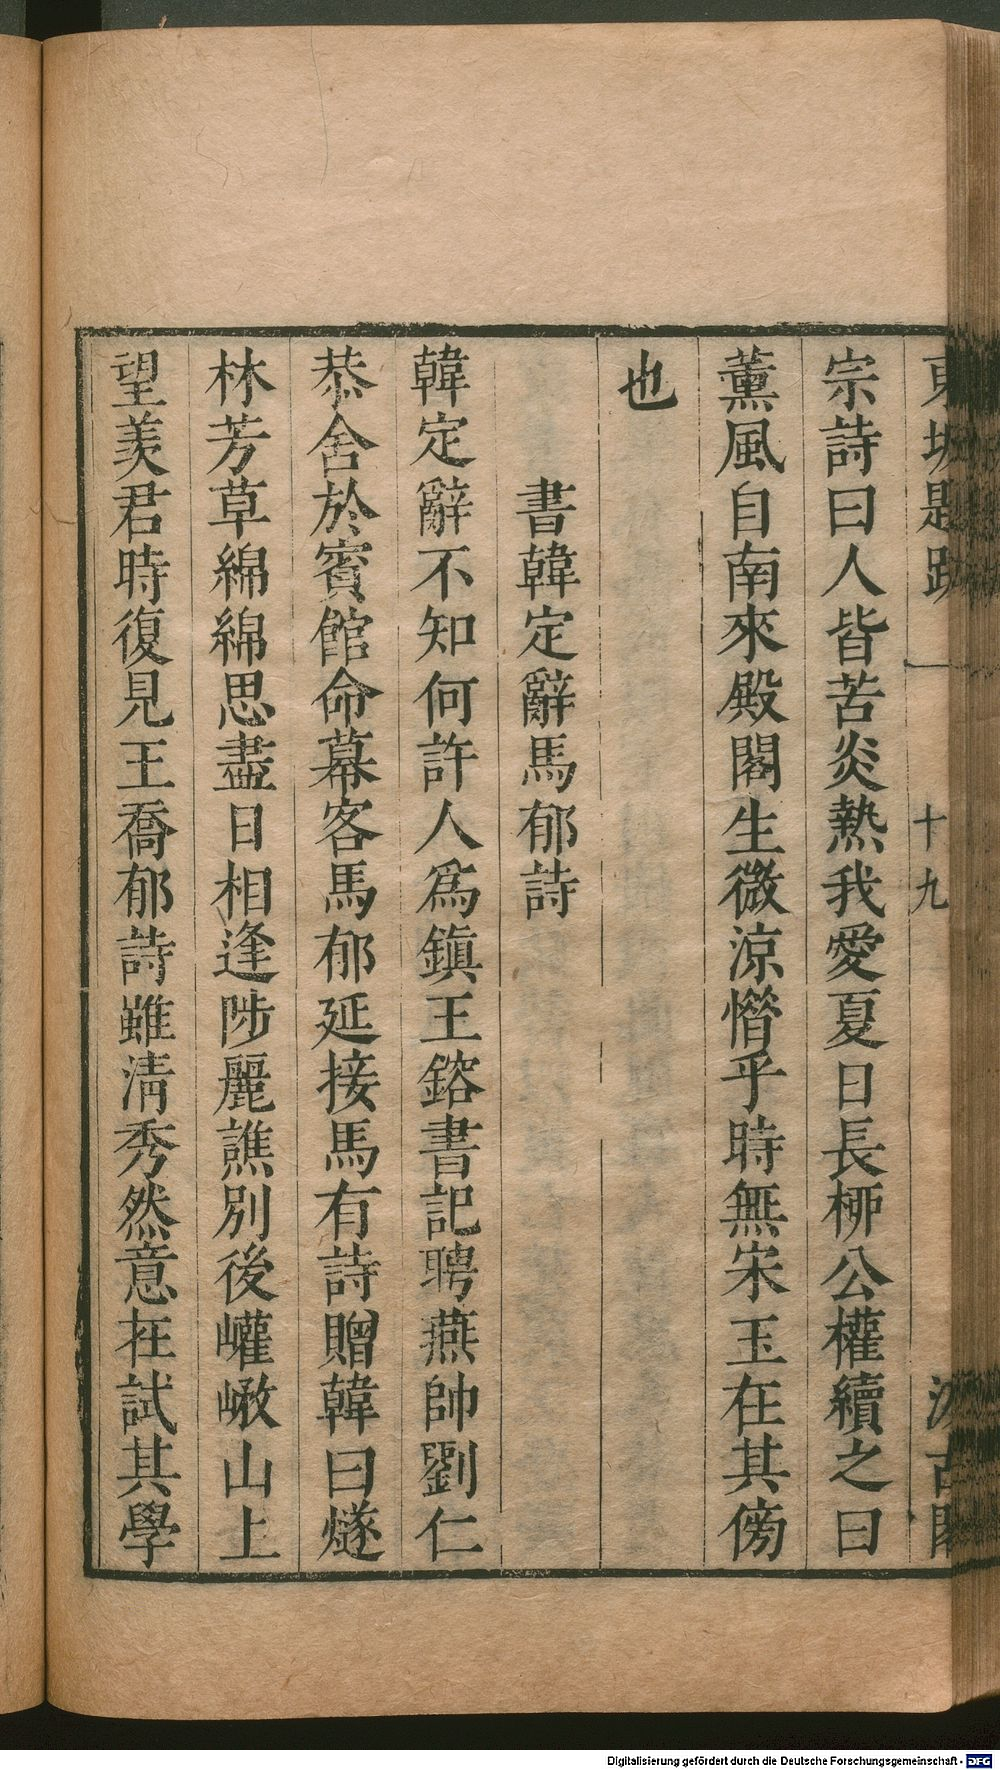 東坡題跋 十九 汲古閣
宗詩曰人皆苦炎熱我愛夏日長栁公權續之曰
薰風自南來殿閣生微涼憯乎時無宋玉在其傍
也
書韓定辭馬郁詩
韓定辭不知何許人爲鎭王鎔書記聘燕帥劉仁
恭舍於賓館命幕客馬郁延接馬有詩贈韓曰燧
林芳草綿綿思盡日相逢陟麗譙別後巏嶅山上
望羨君時復見王喬郁詩雖清秀然意在試其學
Digitalisierung gefördert durch die Deutsche Forschungsgemeinschaft - DFG